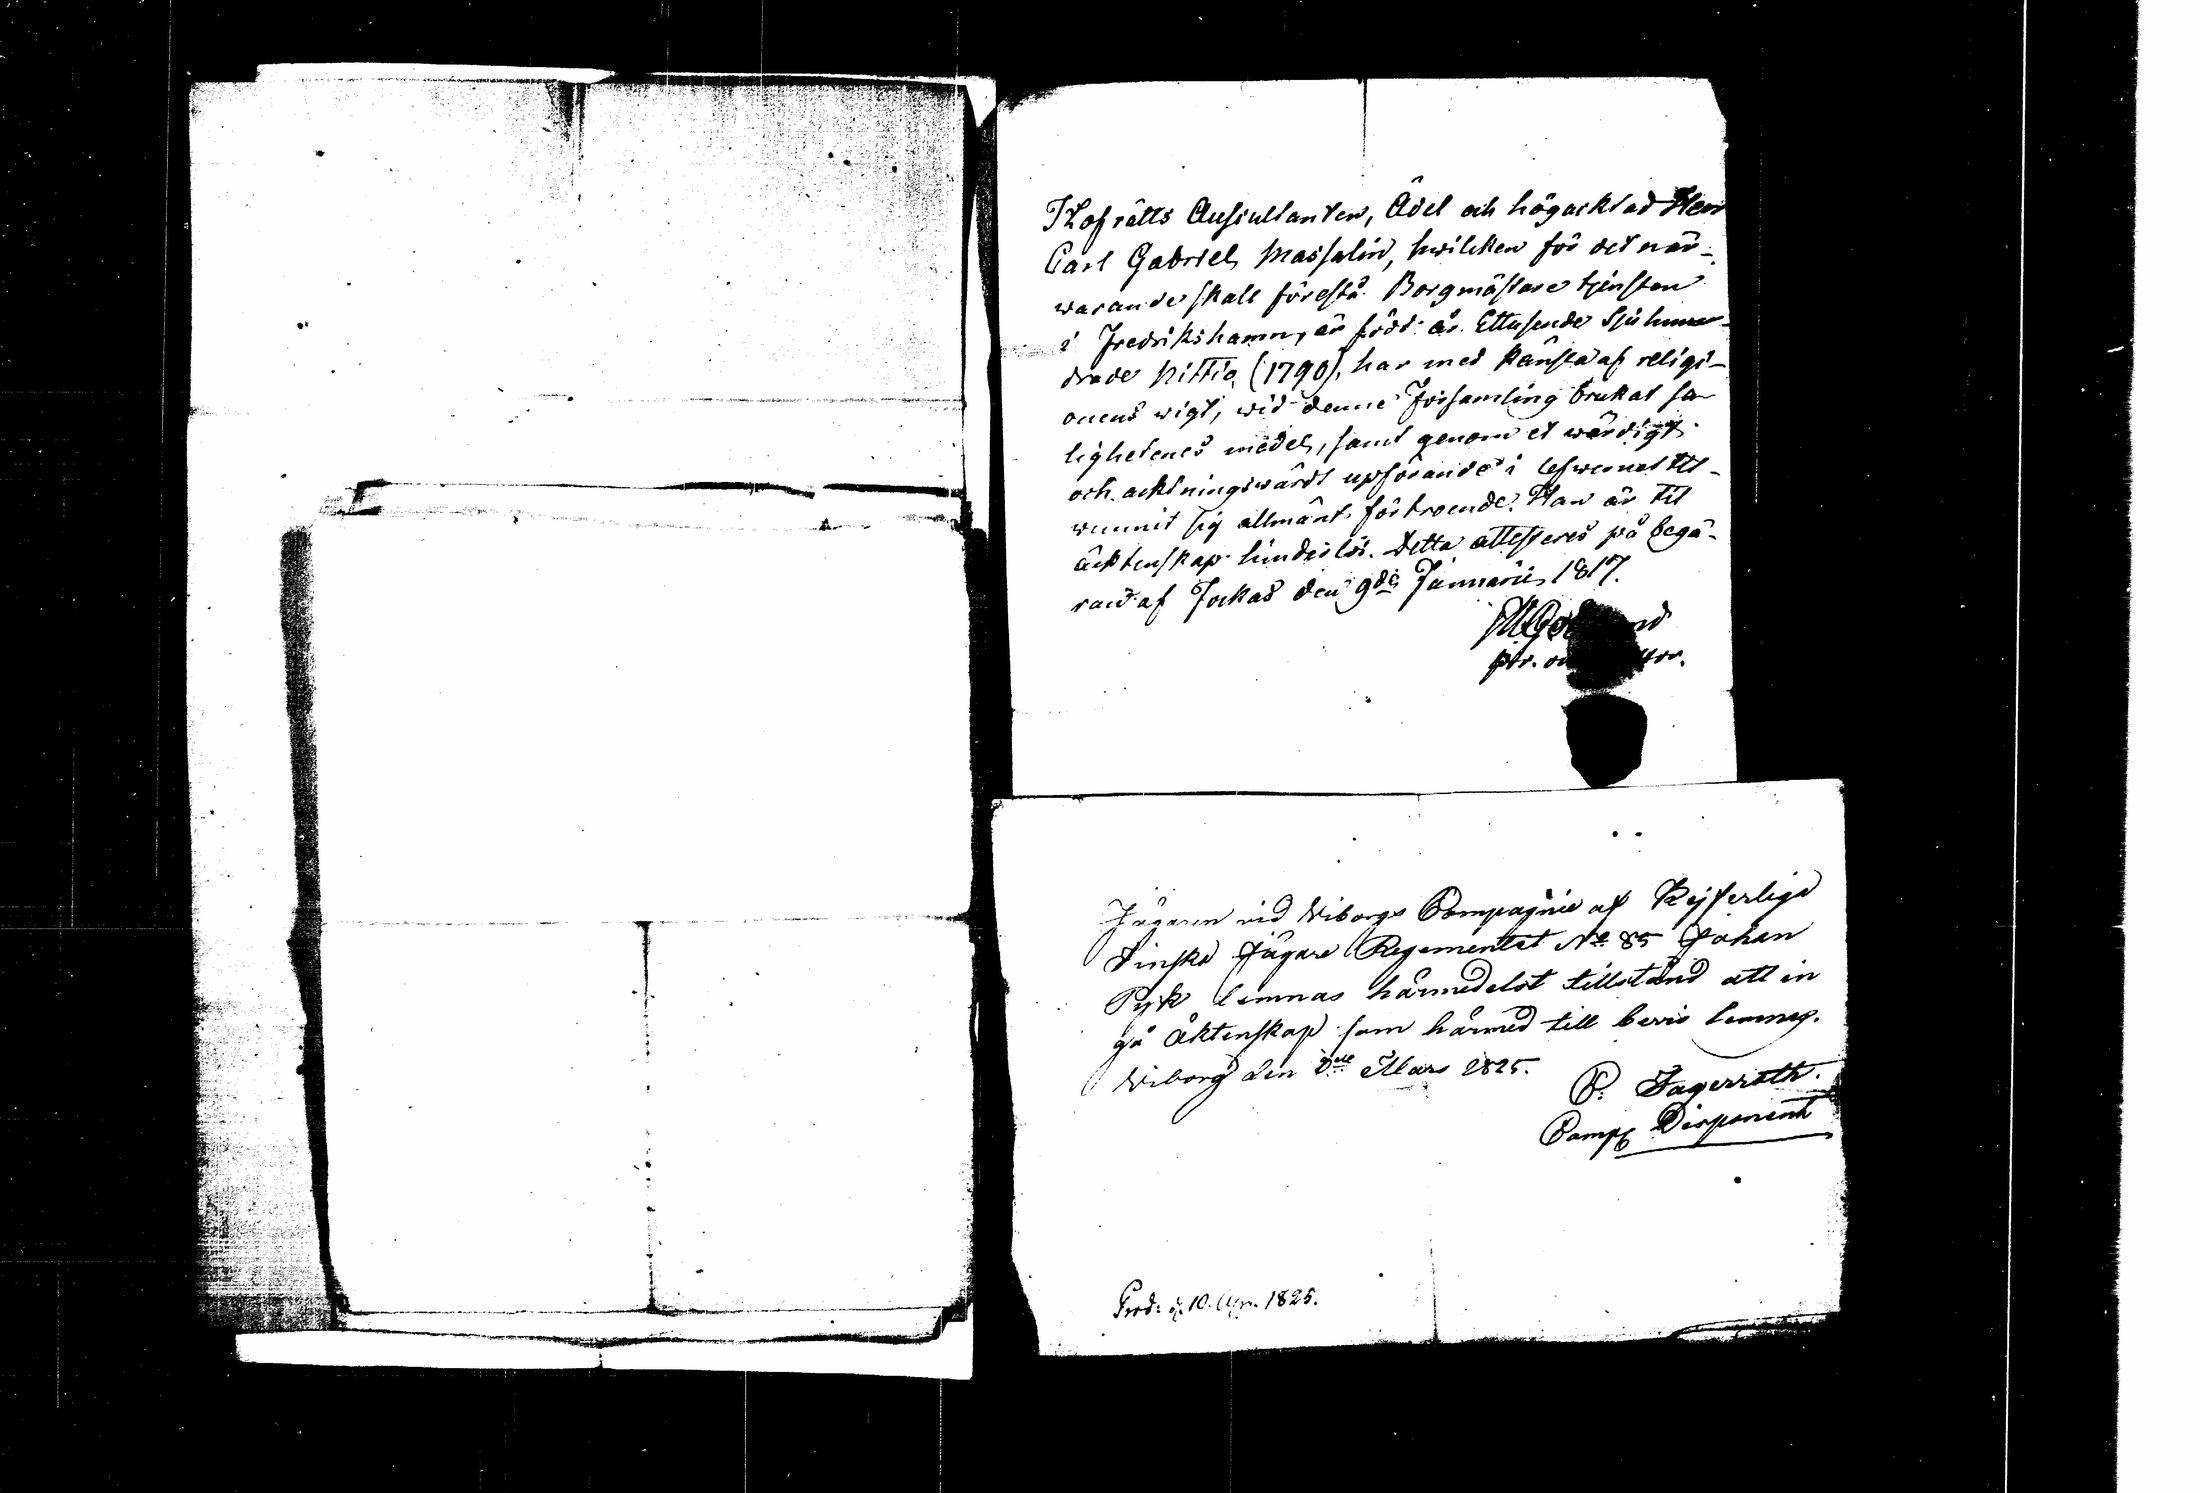 Hofrätts Auscultanten, Ädel och högacktad Herr
Carl Gabriel Massalin, hwilcken för det när-
warande skall förestå Borgmästare tjensten
i Fredrikshamn, är född år Ettusende Sjuhun-
drade Nittio (1790), har med känsla af religi-
onens wigt, wid denne Församling brukat sa-
lighetenes medel, samt genom et wärdigt
och acktningswärdt upförande i lefwernet til-
wunnit sig allmänt förtroende. Han är til
äcktenskap hinderlös. Detta attesteres på begä-
ran af Jockas den 9de Januarii 1817.
Jägaren vid Wiborgs Compagnie af Kejserliga
Finska Jägare Regementet No 85 Johan
Pyk lemnas härmedelst tillstånd att in
gå Äktenskap som härmed till bevis lemnas.
Wiborg den 2ne Mars 1825.
C. Jagerroth.
Comp Disponent
Prod: d. 10. Apr. 1825.